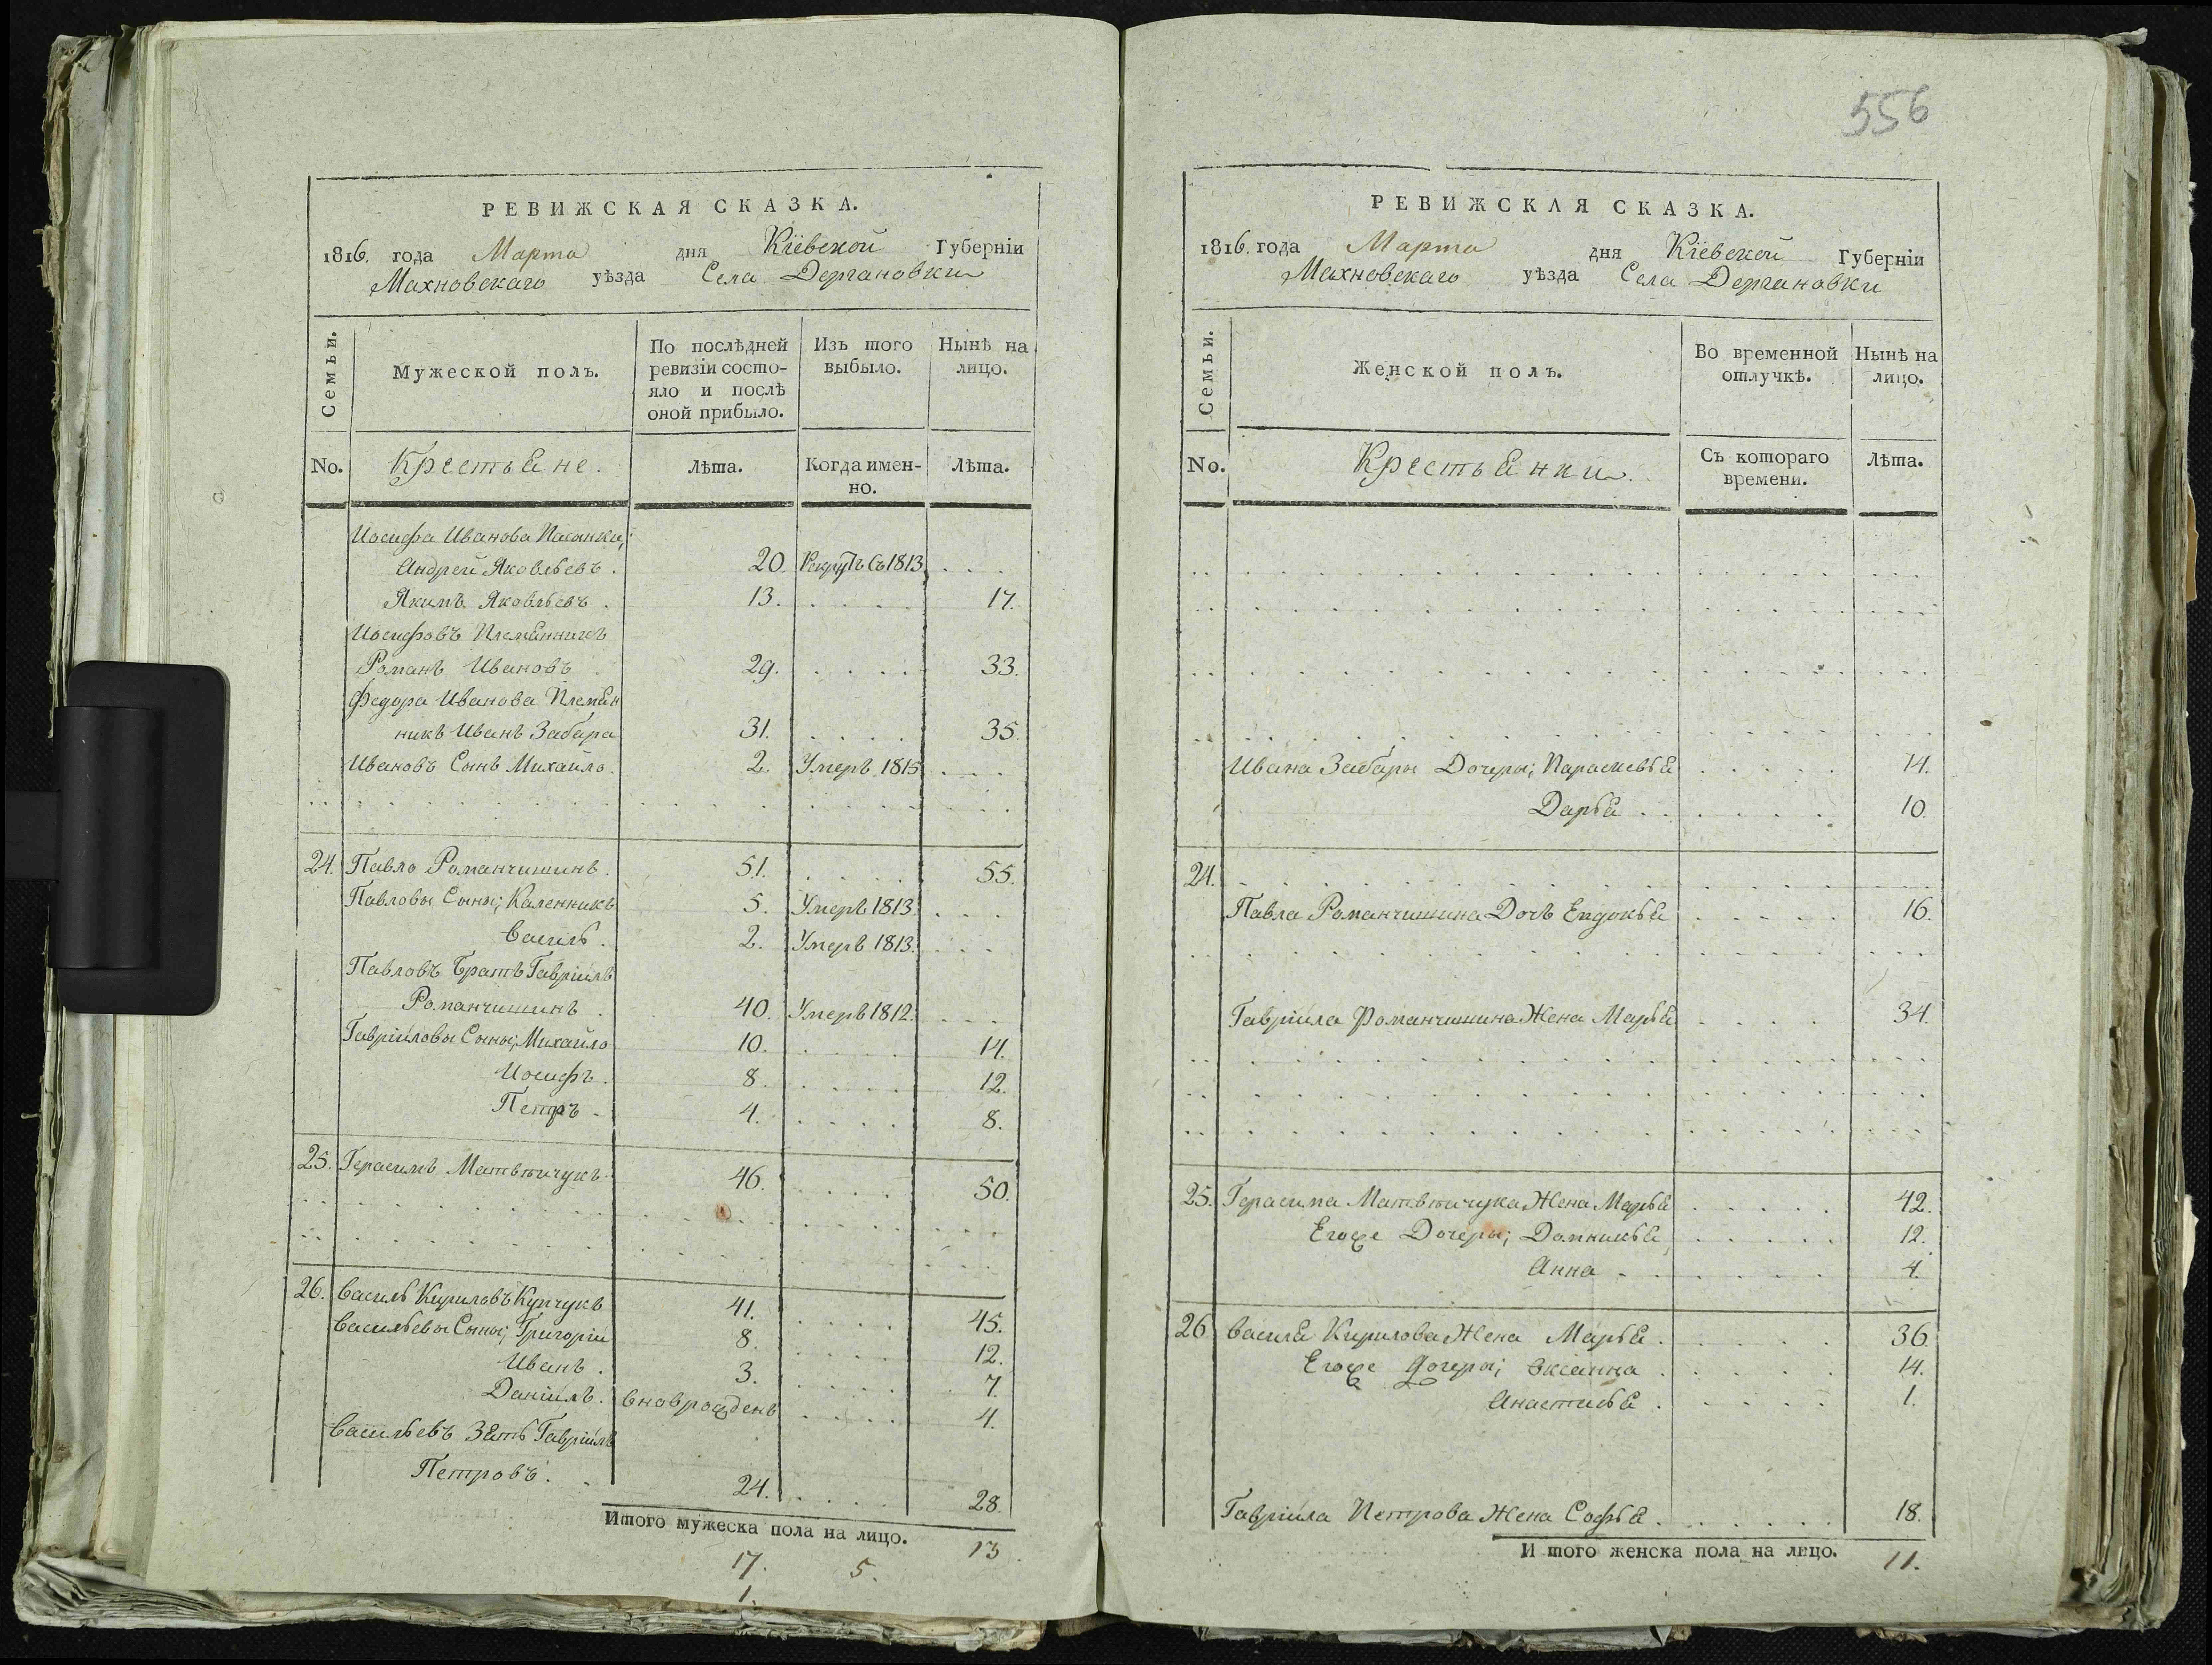 556
РЕВИЖСКАЯ СКАЗКА.
1816. года Марта дня Кіевской Губерніи
Махновскаго уѣзда Села Дергановки
Семьи.
Мужеской полъ.
По послѣдней ревизіи состо-
яло и послѣ
оной прибыло.
Изъ того выбыло.
Нынѣ на лицо.
No. Крестьяне. Лѣта. Когда имен-
но. Лѣта.
Иосифа Иванова Пасынки,
Андрей Яковлевъ. 20. Рекрутъ съ 1813
Якимъ Яковлевъ. 13. 17.
Иосифовъ Племянникъ
Романъ Ивановъ 29. 33.
Федора Иванова Племян
никъ Иванъ Забара 31. 35.
Ивановъ Сынъ Михайло. 2. Умеръ 1815
24. Павло Романчишинъ. 51. 55.
Павловы Сыны; Каленникъ 5. Умеръ 1813.
Василь. 2. Умеръ 1813.
Павловъ Братъ Гавріилъ
Романчишинъ. 40. Умеръ 1812.
Гавріиловы Сыны; Михайло 10. 14.
Иосифъ. 8. 12.
Петръ. 4. 8.
25. Герасимъ Матвѣичукъ. 46. 50.
26. Василь Кириловъ Купчукъ 41. 45.
Васильевы Сыны; Григорій 8. 12.
Иванъ. 3. 7.
Даніилъ. вноврожденъ 4.
Васильевъ Зять Гавріилъ
Петровъ. 24. 28.
Итого мужеска пола на лицо. 13
17. 5.
1.
РЕВИЖСКАЯ СКАЗКА.
1816. года Марта дня Кіевской Губерніи
Махновскаго уѣзда Села Дергановки
Семьи.
Женской полъ.
Во временной отлучкѣ.
Нынѣ на лицо.
No. Крестьянки. Съ котораго времени. Лѣта.
Ивана Забары Дочеры; Параскевья 14.
Дарья 10.
24.
Павла Романчишина Дочь Евдокья 16.
Гавріила Романчишина Жена Марья 34.
25. Герасима Матвѣичука Жена Марья 42.
Егоже Дочеры; Домникья 12.
Анна 4.
26. Василя Кирилова Жена Марья. 36.
Егоже Дочеры; Оксанна 14.
Анастасья. 1.
Гавріила Петрова Жена Софья. 18.
Итого женска пола на лицо. 11.